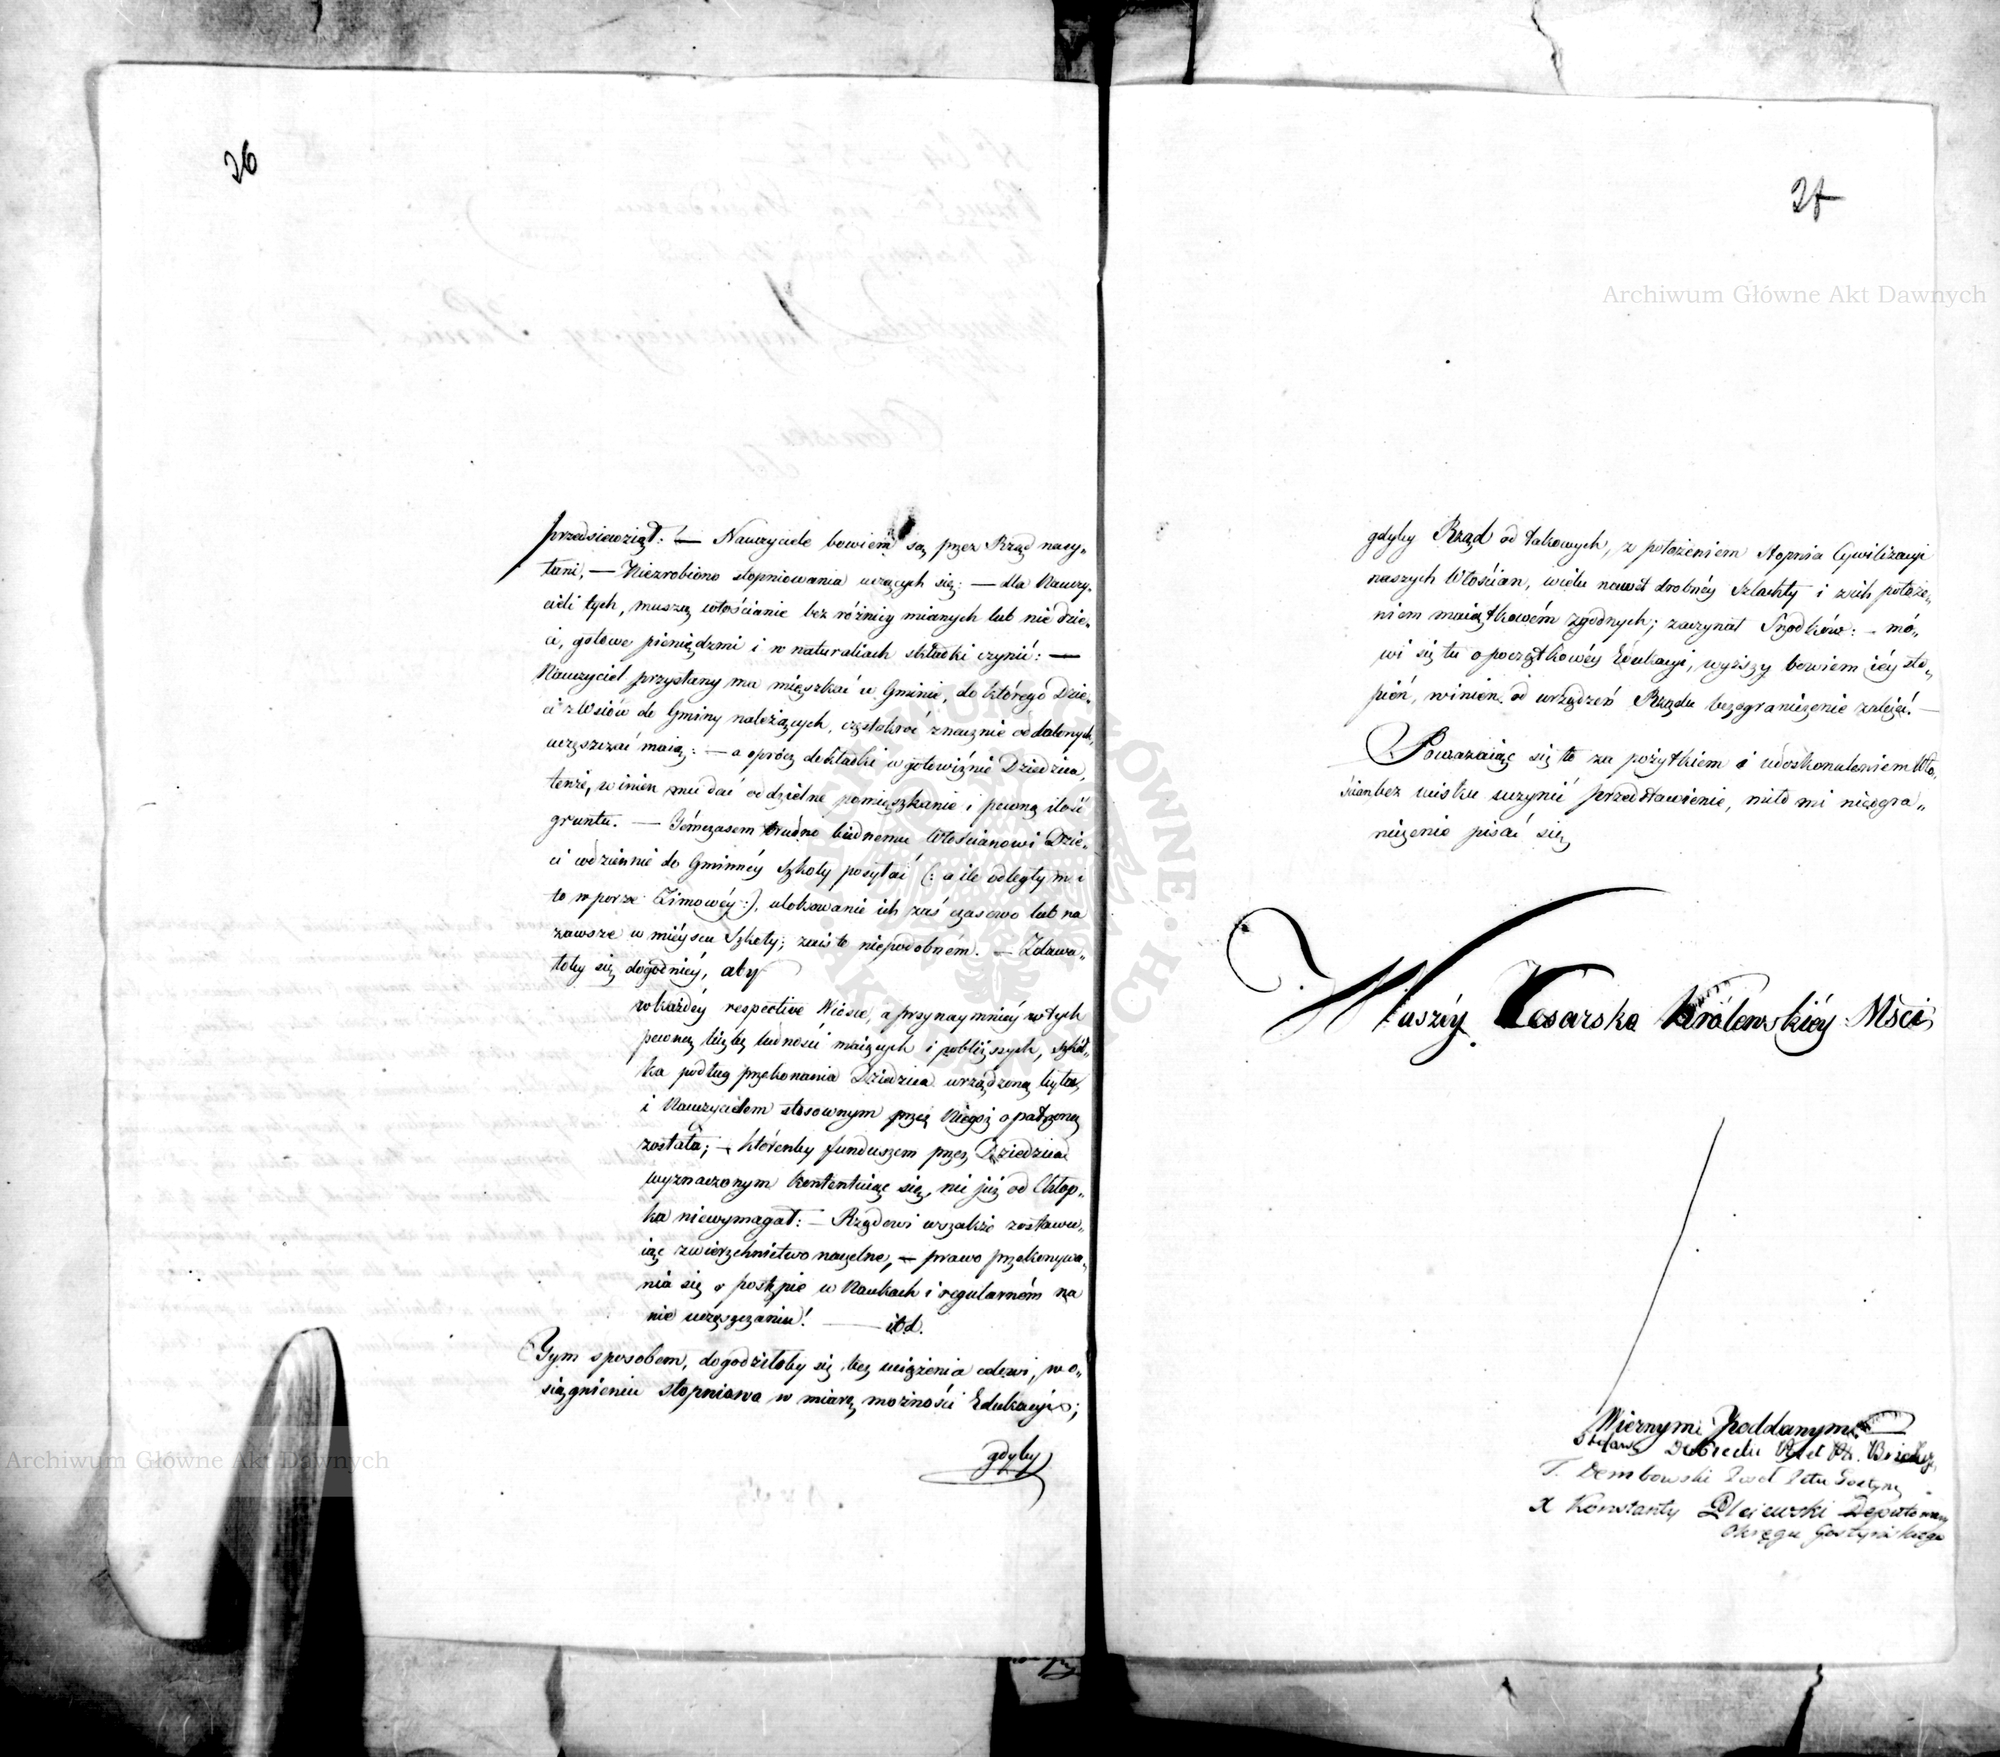 26
przedsiewziął: — Nauczyciele bowiem są przez Rząd nasy„
łani, — Niezrobiono stopniowania uczących się: — dla Nauczy„
cieli tych, muszą włościanie bez różnicy mianych lub nie dzie„
ci, gotowe pieniędzmi i w naturaliach składki czynić: —
Nauczyciel przysłany ma mięszkać w Gminie, do którego Dzie„
ci z Wsiów do Gminy należących, częstokroć znacznie oddalonych,
uczęszczać maią: — a oprócz dokładki w gotowiznie Dziedzica,
tenże, winien mu dać oddzielne pomięszkanie i pewną ilość
gruntu. — Témczasem trudno biednemu Włościanowi Dzie„
ci codziennie do Gminnéy Szkoły posyłać (: a ile odległym i
to w porze Zimowéy :), ulokowanie ich zaś czasowo lub na
zawsze w mieyscu Szkoły; zaiste niepodobném. — Zdawa„
łoby się dogodniéy, aby
w każdéy respective Wiosce, a przynaymniéy w tych
pewną liczbę ludności maiących i pobliższych, szkół„
ka podług przekonania Dziedzica urządzoną była,
i Nauczycielem stosownym przez Niegoż opatrzoną
została; — któreńby funduszem przez Dziedzica
wyznaczonym kontentuiąc się, nic już od Chłop„
ka niewymagał: — Rządowi wszakże zostawu„
iąc zwierzchnictwo naczelne, — prawo przekonywa„
nia się o postępie w Naukach i regularném na
nie uczęszczaniu! — itd.
Tym sposobem, dogodziłoby się, bez uciążenia celowi, w o„
siągnieniu stopniowo w miarę możności Edukacyi;
gdyby
27
Archiwum Główne Akt Dawnych
gdyby Rząd od takowych, z położeniem Stopnia Cywilizacyi
naszych Włościan, wielu nawet drobnéy Szlachty i z ich położe„
niem maiątkowém zgodnych; zaczynał Srodków: — mó„
wi się tu o początkowéy Edukacyi, wyższy bowiem iéy sto„
pień, winien od urządzeń Rządu bezograniczenie zależeć! —
Poważaiąc się to za pożytkiem i udoskonaleniem Wło„
ścian bez ucisku uczynić przedstawienie, miło mi nieogra„
niczenie pisać się
Waszéy Cesarsko Królewskiéy Mści
Wiernym Poddanym
T. Dembowski Poseł Pttu Gostyń
X Konstanty Plejewski Deputowany
Okręgu Gostyńskiego
Archiwum Główne Akt Dawnych